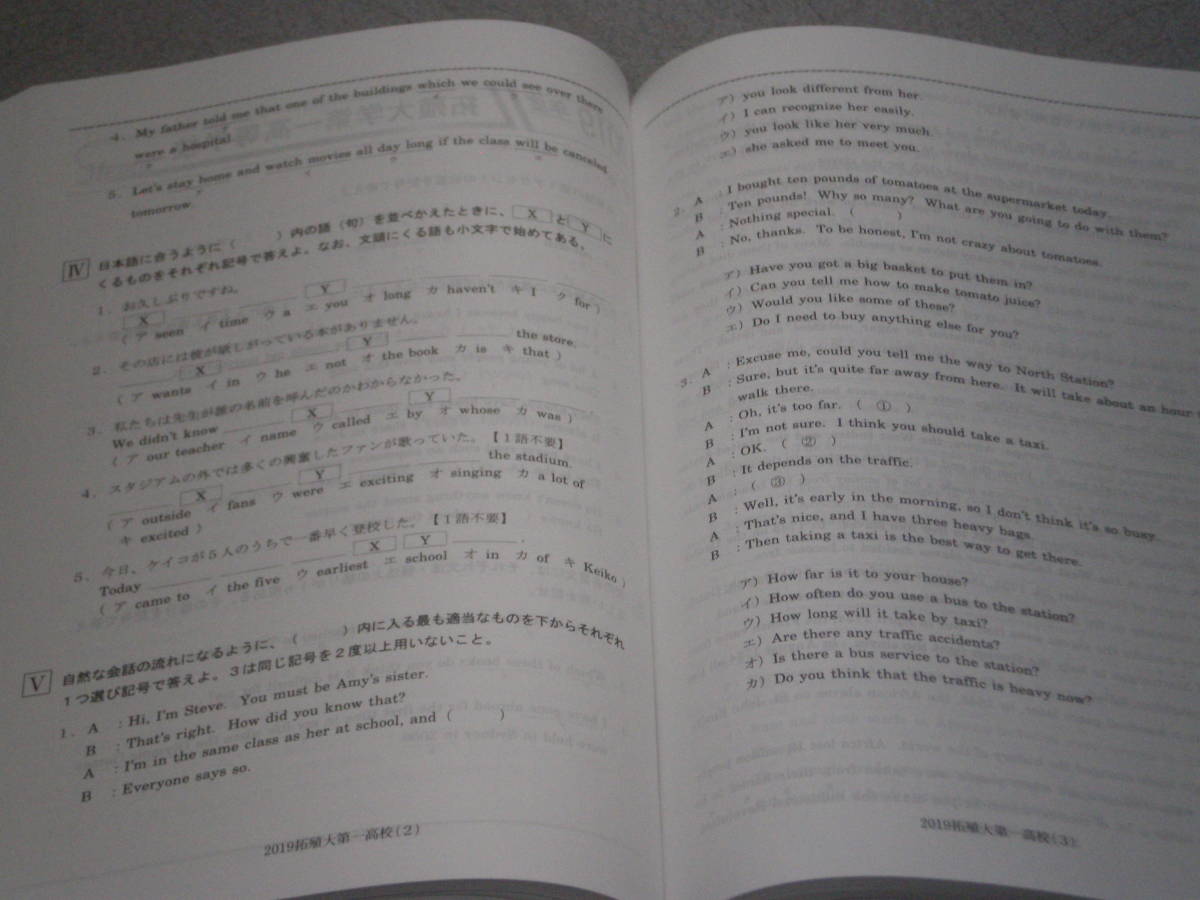 4. My father told me that one of the buildings which we could see over there
were a hospital.
5. Let's stay home and watch movies all day long if the class will be canceled
tomorrow.
Ⅳ 日本語に合うように（　　）内の語（句）を並べかえたときに、 X と Y に
くるものをそれぞれ記号で答えよ。なお、文頭にくる語も小文字で始めてある。
1. お久しぶりですね。
X Y
( ア seen イ time ウ a エ you オ long カ haven't キ I ク for )
2. その店には彼が欲しがっている本がありません。
X Y the store.
( ア wants イ in ウ he エ not オ the book カ is キ that )
3. 私たちは先生が誰の名前を呼んだのかわからなかった。
We didn't know X Y .
( ア our teacher イ name ウ called エ by オ whose カ was )
4. スタジアムの外では多くの興奮したファンが歌っていた。【1語不要】
X Y the stadium.
( ア outside イ fans ウ were エ exciting オ singing カ a lot of
キ excited )
5. 今日、ケイコが5人のうちで一番早く登校した。【1語不要】
Today X Y .
( ア came to イ the five ウ earliest エ school オ in カ of キ Keiko )
Ⅴ 自然な会話の流れになるように、（　　）内に入る最も適当なものを下からそれぞれ
1つ選び記号で答えよ。3は同じ記号を2度以上用いないこと。
1. A : Hi, I'm Steve. You must be Amy's sister.
B : That's right. How did you know that?
A : I'm in the same class as her at school, and ( )
B : Everyone says so.
2019拓殖大第一高校(2)
ア) you look different from her.
イ) I can recognize her easily.
ウ) you look like her very much.
エ) she asked me to meet you.
2. A : I bought ten pounds of tomatoes at the supermarket today.
B : Ten pounds! Why so many? What are you going to do with them?
A : Nothing special. ( )
B : No, thanks. To be honest, I'm not crazy about tomatoes.
ア) Have you got a big basket to put them in?
イ) Can you tell me how to make tomato juice?
ウ) Would you like some of these?
エ) Do I need to buy anything else for you?
3. A : Excuse me, could you tell me the way to North Station?
B : Sure, but it's quite far away from here. It will take about an hour
walk there.
A : Oh, it's too far. ( ① )
B : I'm not sure. I think you should take a taxi.
A : OK. ( ② )
B : It depends on the traffic.
A : ( ③ )
B : Well, it's early in the morning, so I don't think it's so busy.
A : That's nice, and I have three heavy bags.
B : Then taking a taxi is the best way to get there.
ア) How far is it to your house?
イ) How often do you use a bus to the station?
ウ) How long will it take by taxi?
エ) Are there any traffic accidents?
オ) Is there a bus service to the station?
カ) Do you think that the traffic is heavy now?
2019拓殖大第一高校(3)